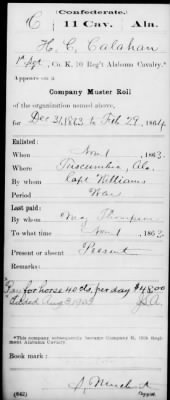 Confederate.
C 11 Cav. Ala.
H. C. Calahan
1st Sgt, Co. K, 10 Reg't Alabama Cavalry.*
Appears on a
Company Muster Roll
of the organization named above,
for Dec 31, 1863 to Feb 29, 1864
Enlisted:
When Nov 1, 1863.
Where Tuscumbia, Ala.
By whom Capt Williams
Period War
Last paid:
By whom Maj Thompson
To what time Nov 1, 1863.
Present or absent Present
Remarks:
Pay for horse 40 cts. per day $48.00
*This company subsequently became Company K, 11th Regiment Alabama Cavalry.
Book mark:
(642) Copyist.